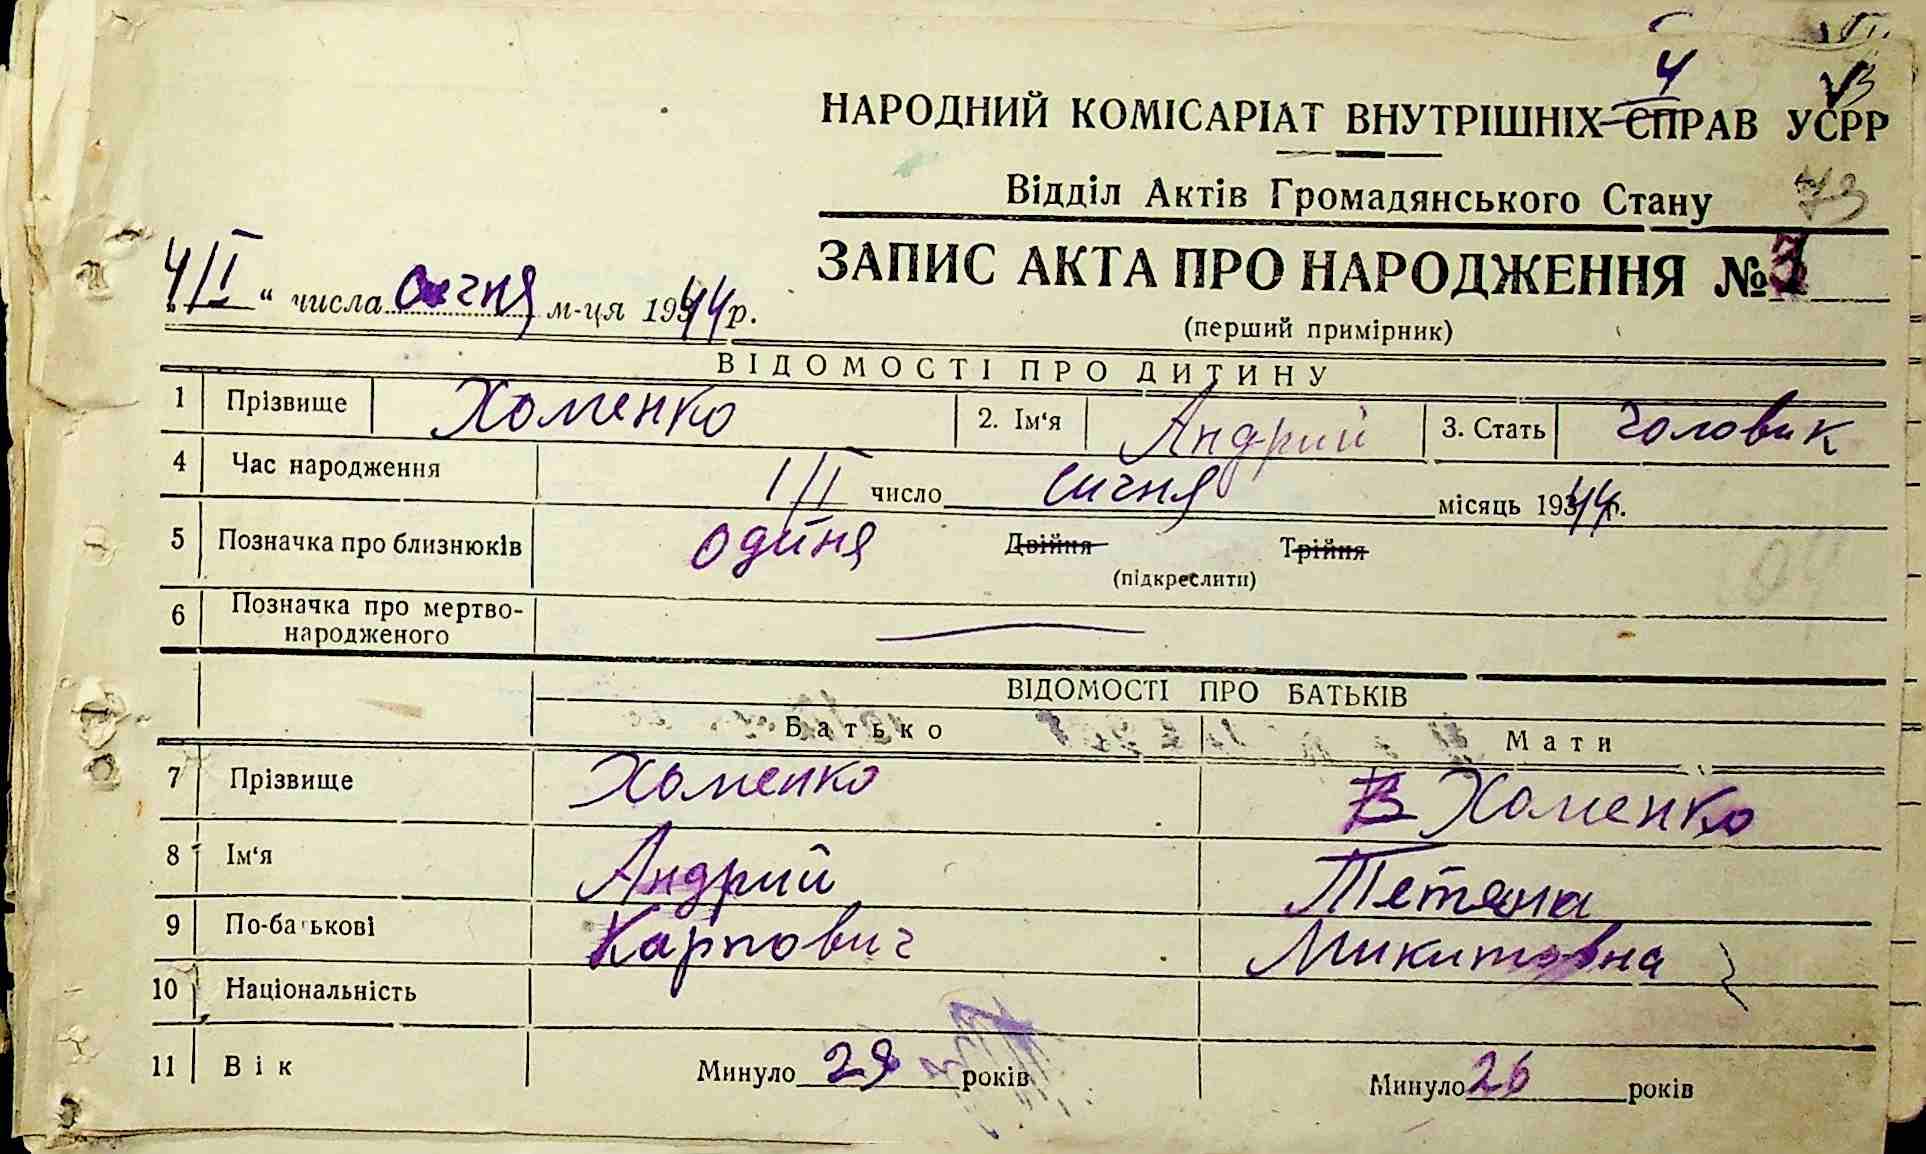 4
V3
НАРОДНИЙ КОМІСАРІАТ ВНУТРІШНІХ СПРАВ УСРР
Відділ Актів Громадянського Стану
73
ЗАПИС АКТА ПРО НАРОДЖЕННЯ № 3
„4/I“ числа січня м-ця 1944 р.
(перший примірник)
ВІДОМОСТІ ПРО ДИТИНУ
1 Прізвище Хоменко 2. Ім‘я Андрий 3. Стать чоловик
4 Час народження 1/I число сичня місяць 1944 р.
5 Позначка про близнюків одиня Двійня Трійня
(підкреслити)
6 Позначка про мертво-
народженого
ВІДОМОСТІ ПРО БАТЬКІВ
Батько Мати
7 Прізвище Хоменко Хоменко
8 Ім‘я Андрий Тетяна
9 По-батькові Карпович Микитовна
10 Національність
11 Вік Минуло 29 років Минуло 26 років